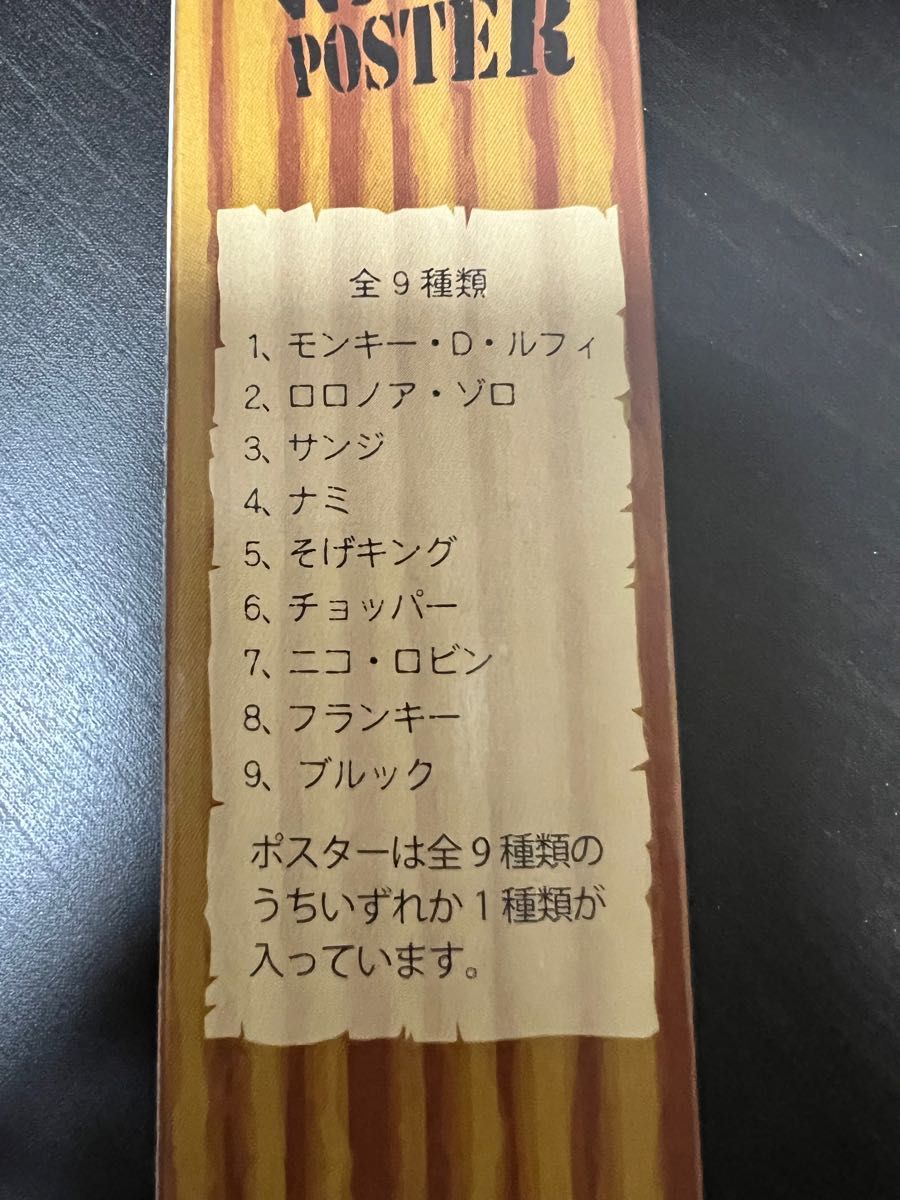 POSTER
全9種類
1、モンキー・D・ルフィ
2、ロロノア・ゾロ
3、サンジ
4、ナミ
5、そげキング
6、チョッパー
7、ニコ・ロビン
8、フランキー
9、ブルック
ポスターは全9種類の
うちいずれか1種類が
入っています。